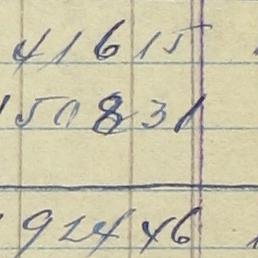 41615
150831
192446